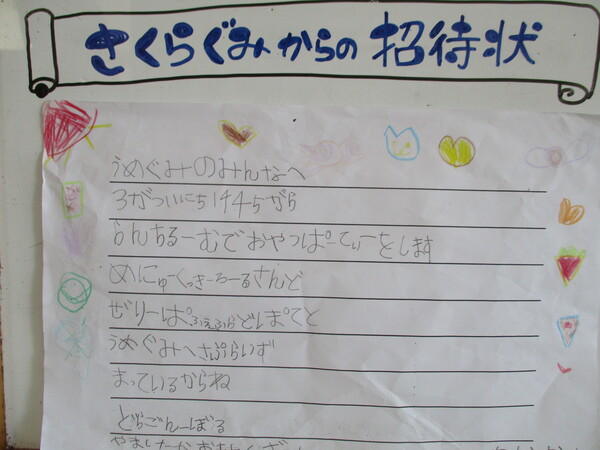 さくらぐみからの招待状
うめぐみのみんなへ
3がついにち
らんちるーむでおやつぱーてぃーをします
めにゅーくっきーろーるさんど
ぜりーぱふぇふらどぽてと
うめぐみへさぷらいず
まっているからね
どらごんーぼる